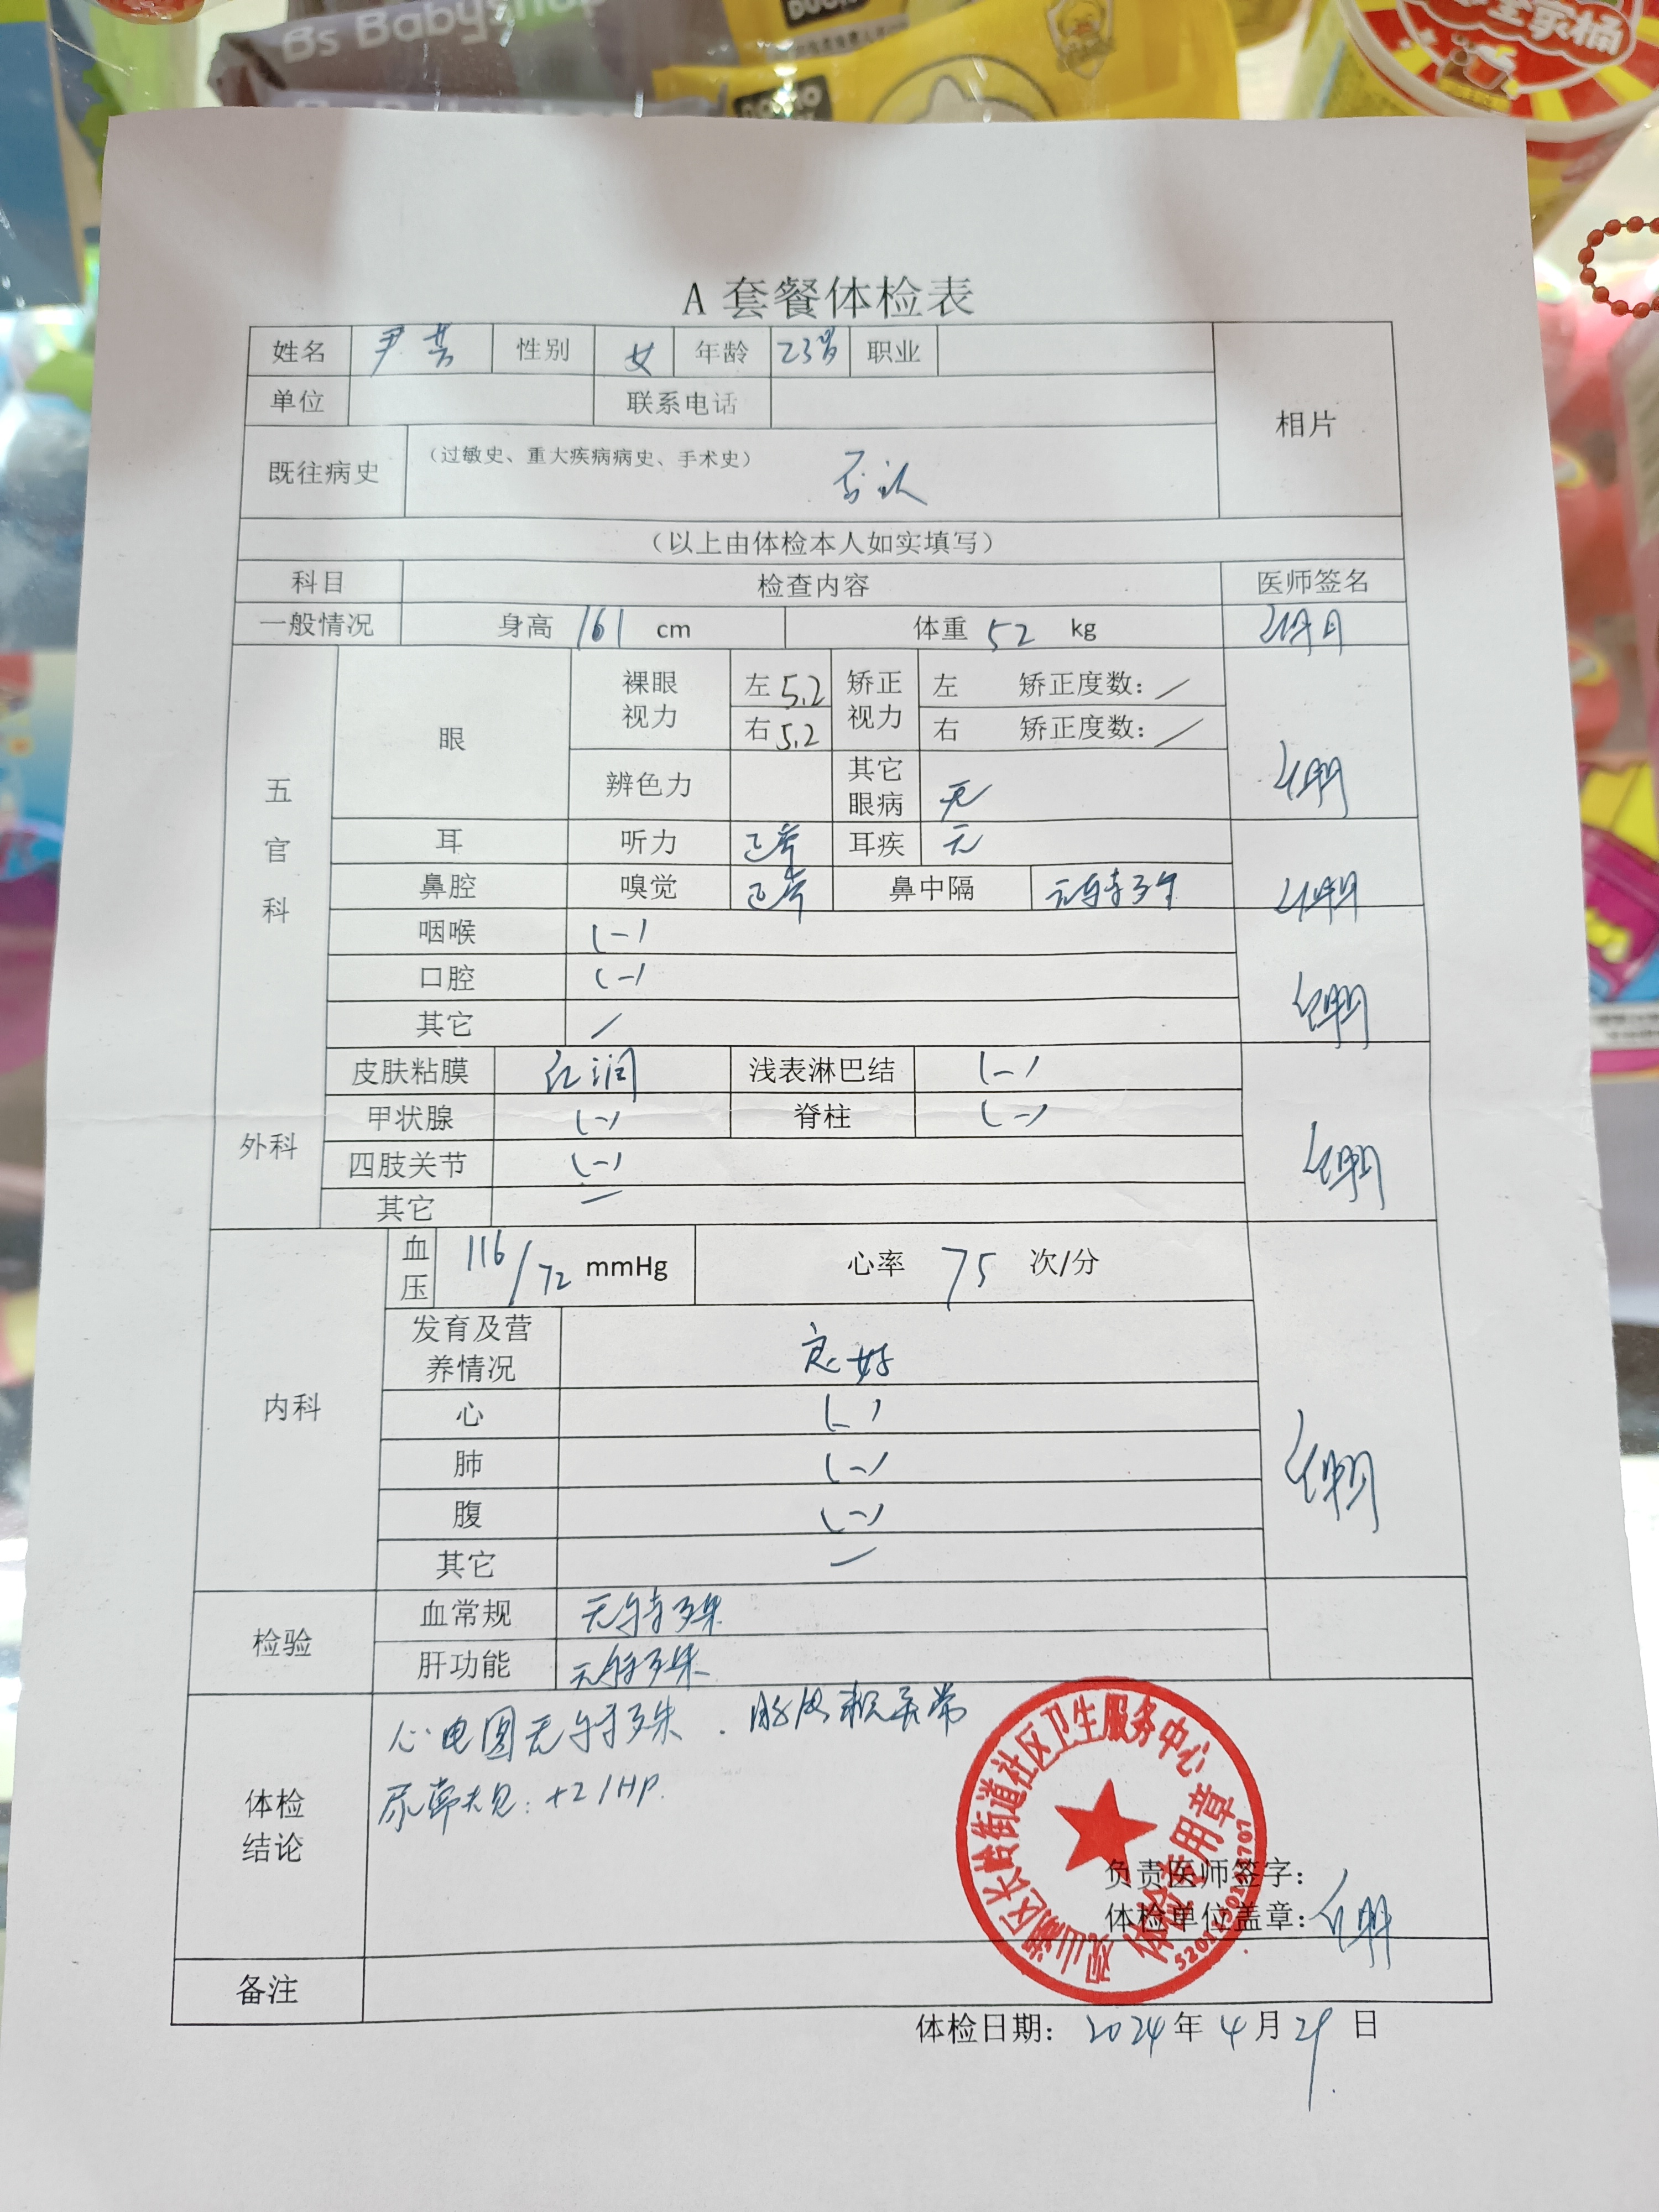 Bs Babyshop
全家桶
A 套餐体检表
姓名 尹 性别 女 年龄 23岁 职业
相片
单位 联系电话
既往病史 (过敏史、重大疾病病史、手术史) 否认
(以上由体检本人如实填写)
科目 检查内容 医师签名
一般情况 身高 161 cm 体重 52 kg
五官科
眼 裸眼视力 左 5.2 矫正视力 左 矫正度数: /
右 5.2 右 矫正度数: /
辨色力 其它眼病 无
耳 听力 正常 耳疾 无
鼻腔 嗅觉 正常 鼻中隔 无特殊
咽喉 (-)
口腔 (-)
其它 /
外科
皮肤粘膜 红润 浅表淋巴结 (-)
甲状腺 (-) 脊柱 (-)
四肢关节 (-)
其它 —
内科
血压 116/72 mmHg 心率 75 次/分
发育及营养情况 良好
心 (-)
肺 (-)
腹 (-)
其它 —
检验
血常规 无特殊
肝功能 无特殊
体检结论
心电图无特殊.
尿常规: +2/HP.
负责医师签字:
体检单位盖章:
南明区长岭街道社区卫生服务中心
体检专用章
备注
体检日期: 2024 年 4 月 29 日